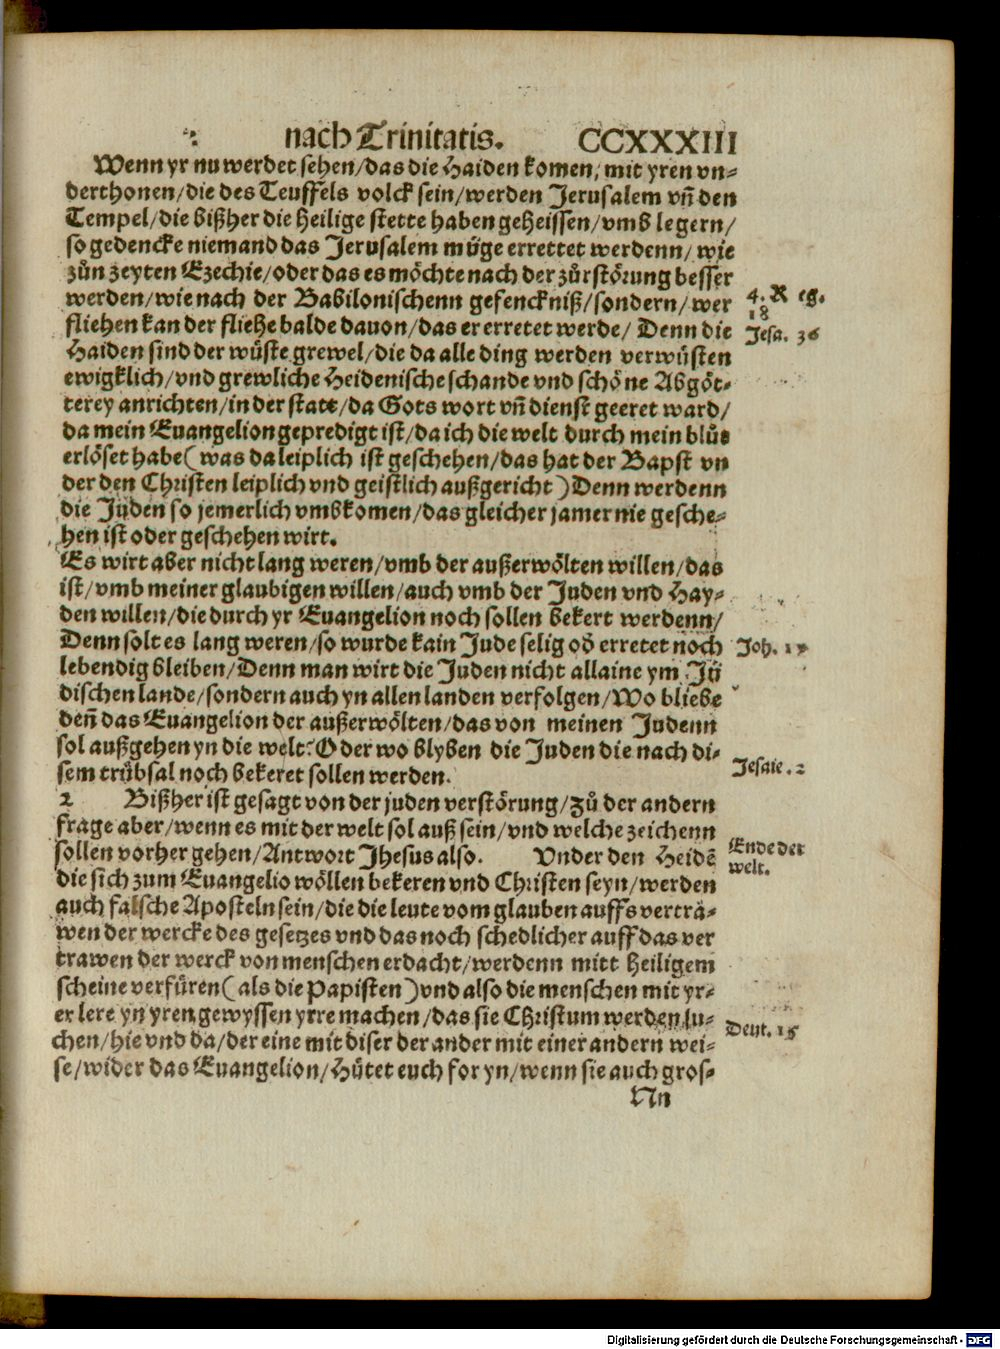 nach Trinitatis. CCXXXIII
Wenn yr nu werdet sehen/das die Haiden komen/ mit yren vn-
derthonen/die des Teuffels volck sein/werden Jerusalem vn̄ den
Tempel/die bißher die heilige stette haben geheissen/vmb legern/
so gedencke niemand das Jerusalem müge errettet werdenn/ wie
zůn zeyten Ezechie/oder das es möchte nach der zůrstörung besser
werden/wie nach der Babilonischenn gefenckniß/sondern/wer
4. Reg.
18
fliehen kan der fliehe balde dauon/das er erretet werde/ Denn die
Jesa. 36
Haiden sind der wüste grewel/die da alle ding werden verwüsten
ewigklich/vnd grewliche Heidenische schande vnd schöne Abgöt-
terey anrichten/in der statt/da Gots wort vn̄ dienst geeret ward/
da mein Euangelion gepredigt ist/da ich die welt durch mein blůt
erlöset habe(was da leiplich ist geschehen/das hat der Bapst vn
der den Christen leiplich vnd geistlich außgericht)Denn werdenn
die Jüden so jemerlich vmbkomen/das gleicher jamer nie gesche-
hen ist oder geschehen wirt.
Es wirt aber nicht lang weren/vmb der außerwölten willen/das
ist/vmb meiner glaubigen willen/auch vmb der Juden vnd Hay-
den willen/die durch yr Euangelion noch sollen bekert werdenn/
Denn solt es lang weren/so wurde kain Jude selig od̄ erretet noch
Joh. 17
lebendig bleiben/Denn man wirt die Juden nicht allaine ym Jü
dischen lande/sondern auch yn allen landen verfolgen/Wo bliebe
den̄ das Euangelion der außerwölten/das von meinen Judenn
sol außgehen yn die welt? Oder wo blyben die Juden die nach di-
Jesaie. 2
sem trübsal noch bekeret sollen werden.
2 Bißher ist gesagt von der juden verstörung/zů der andern
frage aber/wenn es mit der welt sol auß sein/vnd welche zeichenn
sollen vorher gehen/Antwort Jhesus also. Vnder den Heidē
Ende der
welt.
die sich zum Euangelio wöllen bekeren vnd Christen seyn/werden
auch falsche Aposteln sein/die die leute vom glauben auffs verträ-
wen der wercke des gesetzes vnd das noch schedlicher auff das ver
trawen der werck von menschen erdacht/werdenn mitt heiligem
scheine verfüren(als die Papisten)vnd also die menschen mit yr-
er lere yn yren gewyssen yrre machen/das sie Christum werden su-
Deut. 15
chen/hie vnd da/der eine mit diser der ander mit einer andern wei-
se/wider das Euangelion/Hütet euch for yn/wenn sie auch gros-
Nn
Digitalisierung gefördert durch die Deutsche Forschungsgemeinschaft - DFG